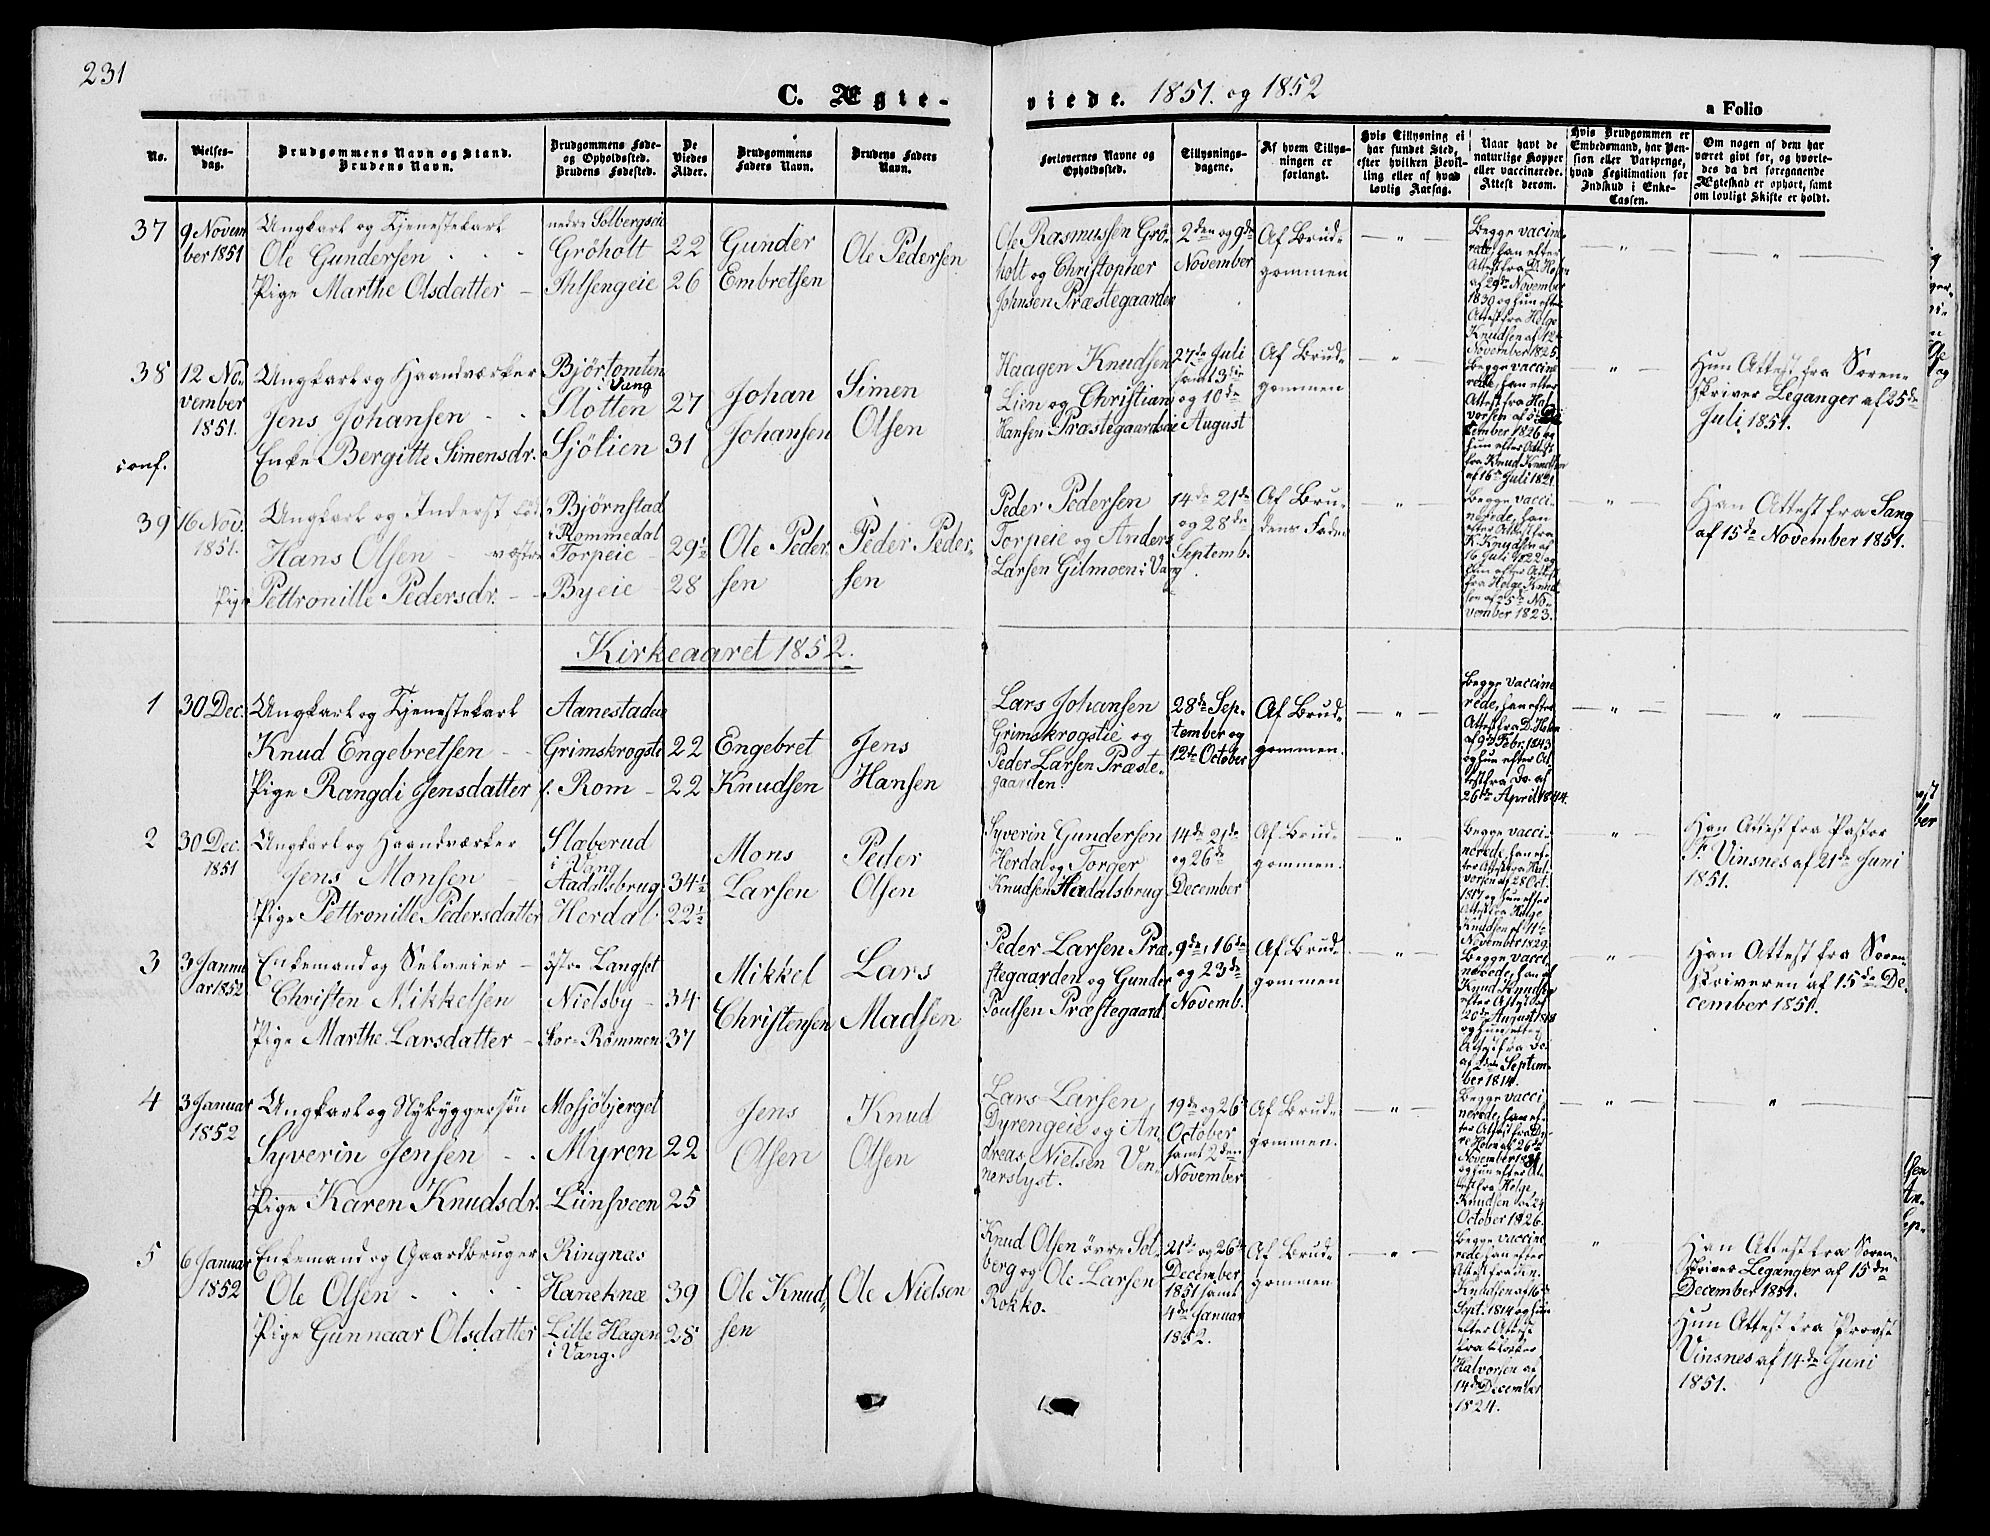 231
C. Ægte-
viede. 1851. og 1852
a Folio
No.
Vielses-
dag.
Brudgommens Navn og Stand.
Brudens Navn.
Brudgommens Føde-
og Opholdssted.
Brudens Fødested.
De
Viedes
Alder.
Brudgommens
Faders Navn.
Brudens Faders
Navn.
Forlovernes Navne og
Opholdssted.
Tillysnings-
dagene.
Af hvem Tillys-
ningen er
forlangt.
Hvis Tillysning ei
har fundet Sted,
efter hvilken Bevil-
ling eller af hvad
lovlig Aarsag.
Naar havt de
naturlige Kopper
eller vaccinerede.
Attest derom.
Hvis Brudgommen er
Embedsmand, har Pen-
sion eller Vartpenge,
hvad Legitimation for
Indskud i Enke-
Cassen.
Om nogen af dem har
været givt før, og hvorle-
des da det foregaaende
Ægteskab er ophørt, samt
om lovligt Skifte er holdt.
37
9 Novem
ber 1851
Ungkarl og Tjenestekarl
Ole Gundersen
Pige Marthe Olsdatter
nedre Solbergseie
Gröholt
Ihlsengeie
22
26
Gunder
Embretsen
Ole Pedersen
Ole Rasmussen Grö-
holt og Christopher
Johnsen Præstegaarden
2den og 9de
November
Af Brud-
gommen
Begge vacine-
rede, han efter
Attest fra D. Holm
af 29de November
1830 og hun efter
Attest fra Helge
Knudsen af 12te
November 1825.
38
12 No-
vember
1851.
conf.
Ungkarl og Haandværker
Jens Johansen
Enke Bergitte Simensdr.
Bjørtomten
Vang
Slotten
Sjölien
27
31
Johan
Johansen
Simen
Olsen
Haagen Knudsen
Lien og Christian
Hansen Præstegaardseie
27de Juli
samt 3die
og 10de
August
Af Brud-
gommen
Begge vaccine
rede, han efter
Attest fra Hal
vorsen af 5te De
cember 1826 og
hun efter Attest
fra Knud Knudsen
af 16de Juli 1821.
Hun Attest fra Soren-
skriver Leganger af 25de
Juli 1851.
39
16 Nov.
1851.
Ungkarl og Inderst
Hans Olsen
Pige Pettronille Pedersdr.
Bjørnstad
i Rommedal
vestre Torpeie
Byeie
29½
28
Ole Peder
sen
Peder Peder-
sen
Peder Pedersen
Torpeie og Anders
Larsen Gilmoen i Vang
14de 21de
og 28de
Septemb.
Af Bru-
dens Fader
Begge vacci-
nerede, han
efter Attest fra
K. Knudsen af
16 Juli 1822 og
hun efter Attest
fra Helge Knud
sen af 25de No-
vember 1823.
Han Attest fra Sang
af 15de November 1851.
Kirkeaaret 1852.
1
30 Dec.
Ungkarl og Tjenestekarl
Knud Engebretsen
Pige Rangdi Jensdatter
Aanestadeie
Grimskrogstie
s. Rom
22
22
Engebret
Knudsen
Jens
Hansen
Lars Johansen
Grimskrogstie og
Peder Larsen Præste-
gaarden.
28de Sep-
tember og
12te October
Af Brud-
gommen.
Begge vaccine
rede, han efter
Attest fra D. Holm
af 9de Febr. 1843
og hun efter At-
test fra do. af
26de April 1844
2
30 Dec.
1851
Ungkarl og Haandværker
Jens Monsen
Pige Pettronille Pedersdatter
Slæberud
i Vang
Aadalsbrug
Herdal
34½
22½
Mons
Larsen
Peder
Olsen
Syverin Gundersen
Herdal og Torger
Knudsen Aadalsbrug
14de 21de
og 26de
December
Af Brud-
gommen.
Begge vacci-
nerede, han ef-
ter Attest fra Hal
vorsen af 28 Oct.
1817 og hun efter
Attest fra Helge
Knudsen af 11te
November 1829.
Han Attest fra Pastor
Pr. Vinsnes af 21de Juni
1851.
3
3 Janu
ar 1852
Enkemand og Selveier
Christen Mikkelsen
Pige Marthe Larsdatter
östre Langset
Nielsby
Stor-Römmen
34
37
Mikkel
Christensen
Lars
Madsen
Peder Larsen Præ-
stegaarden og Gunder
Poulsen Præstegaard.
9de, 16de
og 23de
Novemb.
Af Brud-
gommen
Begge vacci-
nerede, han af
Knud Knudsen
efter Attest af
20de August 1818
og hun efter
Attest fra do.
af 2den Septem-
ber 1814.
Han Attest fra Soren-
skriveren af 15de De-
cember 1851.
4
3 Januar
1852
Ungkarl og Nybyggersön
Syverin Jensen
Pige Karen Knudsdr.
Mosjöbjerget
Myren
Liinsveen
22
25
Jens
Olsen
Knud
Olsen
Lars Larsen
Dyrengeie og An-
dreas Nielsen Ven-
nerslyst.
19de og 26de
October
samt 2den
November
Af Brud-
gommen.
Begge vacci-
nerede, han ef-
ter Attest fra
Holm af 26de
November
og hun efter At-
test fra Helge
Knudsen af 24
October 1826.
5
6 Januar
1852
Enkemand og Gaardbruger
Ole Olsen
Pige Gunnaar Olsdatter
Ringnæs
Haneknæ
Lille Hagen
i Vang.
39
28
Ole Knud-
sen
Ole Nielsen
Knud Olsen övre Sol-
berg og Ole Larsen
Rokko.
21de og 26de
December
1851 samt
4de Januar
1852.
Af Brud-
gommen
Begge vaccine
rede, han efter
Attest fra den.
Knudsen af 16de
Sept. 1814 og hun
efter Attest
fra Klokker
Halvorsen af
14de December
1824.
Han Attest fra Soren-
skriver Leganger af 15de
December 1851.
Hun Attest fra Provst
Vinsnes af 14de Juni
1851.